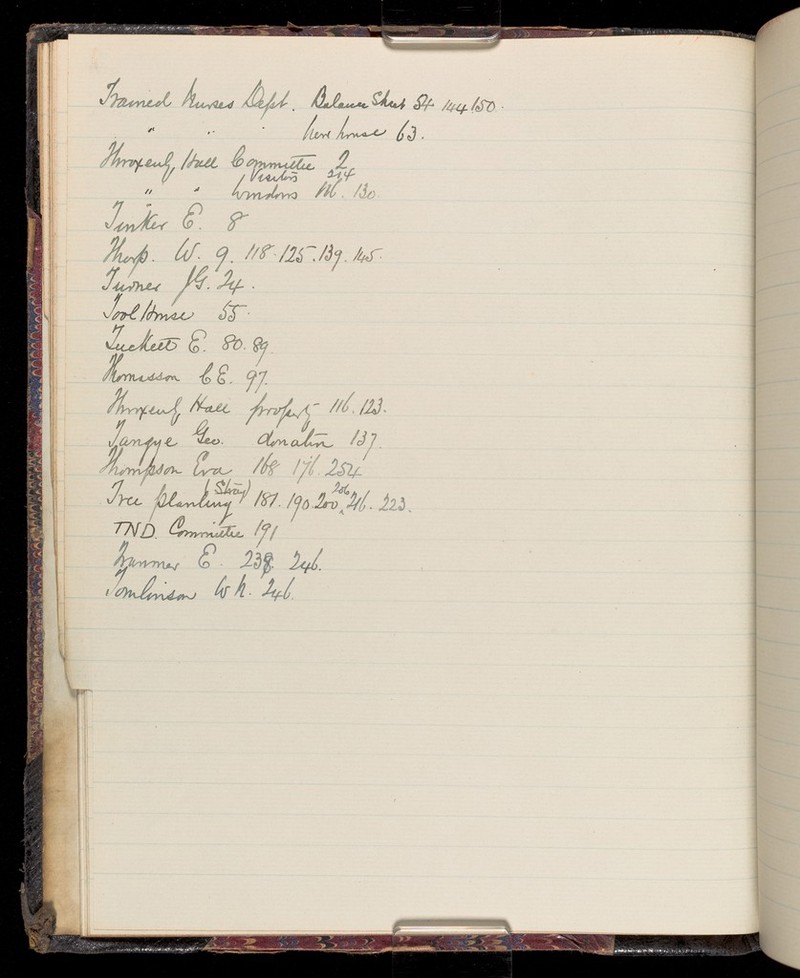 Trained Nurses Dept. Balance Sheet 54 144.150.
" " " New house 63.
Throxenby Hall Committee 2
Visitors 214
" " Windows 116. 130.
Tinker E. 8
Thorp. W. 9. 118. 125. 139. 145.
Turner J G. 24.
Tool House 55.
Tuckett E. 80. 89.
Thomasson C E. 97.
Throxenby Hall property 116. 123.
Tangye Geo. donation 137.
Thompson Eva 168 176. 254
Tree planting (Stray) 181. 190. 200. 206 216. 223.
T.N.D. Committee 191
E. 238. 246.
Tomlinson W N. 246.